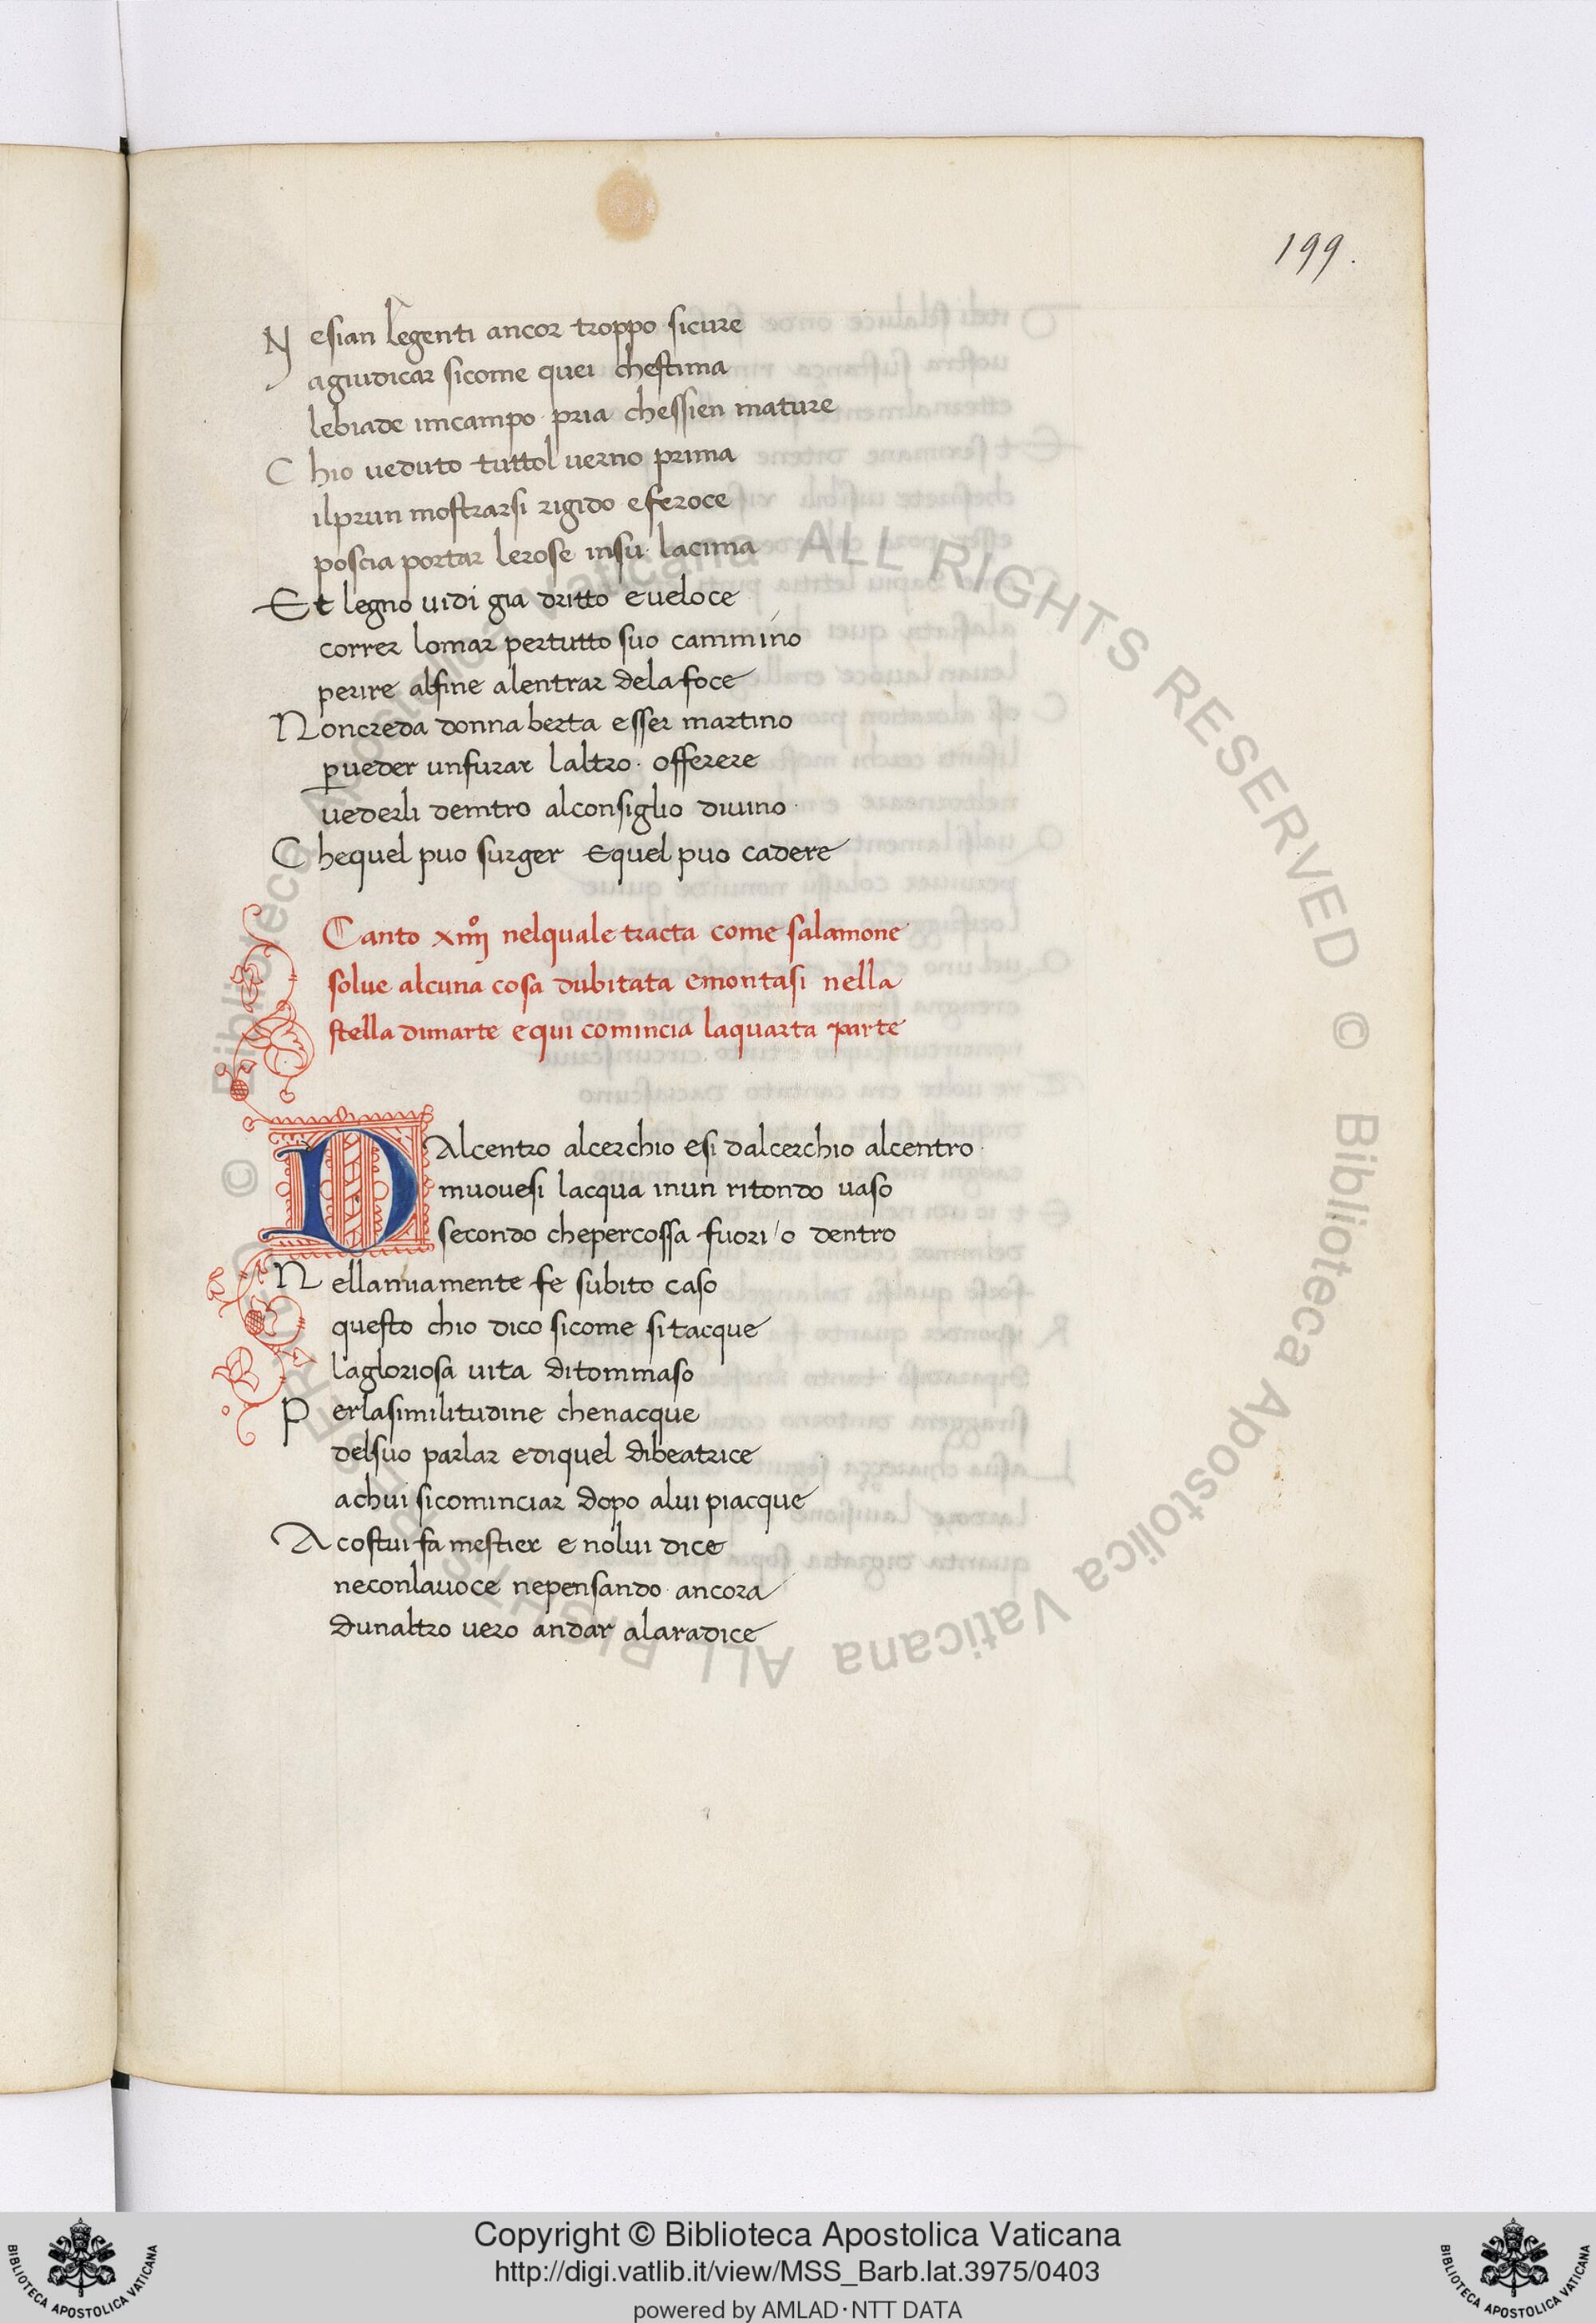 199.
N esian legenti ancor troppo sicure
agiudicar sicome quei chestima
lebiade imcampo pria chessien mature
C hio ueduto tuttol uerno prima
ilprun mostrarsi rigido eferoce
poscia portar lerose insu lacima
Et legno uidi gia dritto eueloce
correr lomar pertutto suo cammino
perire alfine alentrar delafoce
Noncreda donna berta esser martino
p̱ueder unfurar laltro offerere
uederli demtro alconsiglio diuino
C hequel puo surger equel puo cadere
Canto xiiij° nelquale tracta come salamone
solue alcuna cosa dubitata emontasi nella
stella dimarte equi comincia laquarta parte
DAlcentro alcerchio esi dalcerchio alcentro
muouesi lacqua inun ritondo uaso
secondo chepercossa fuori/o dentro
N ellamiamente fe subito caso
questo chio dico sicome sitacque
lagloriosa uita ditommaso
P erlasimilitudine chenacque
delsuo parlar ediquel dibeatrice
achui sicominciar dopo alui piacque
A costui fa mestier e nolui dice
neconlauoce nepensando ancora
dunaltro uero andar alaradice
© Biblioteca Apostolica Vaticana ALL RIGHTS RESERVED © Biblioteca Apostolica Vaticana ALL RIGHTS RESERVED
Copyright © Biblioteca Apostolica Vaticana
http://digi.vatlib.it/view/MSS_Barb.lat.3975/0403
powered by AMLAD·NTT DATA
BIBLIOTECA APOSTOLICA VATICANA
BIBLIOTECA APOSTOLICA VATICANA